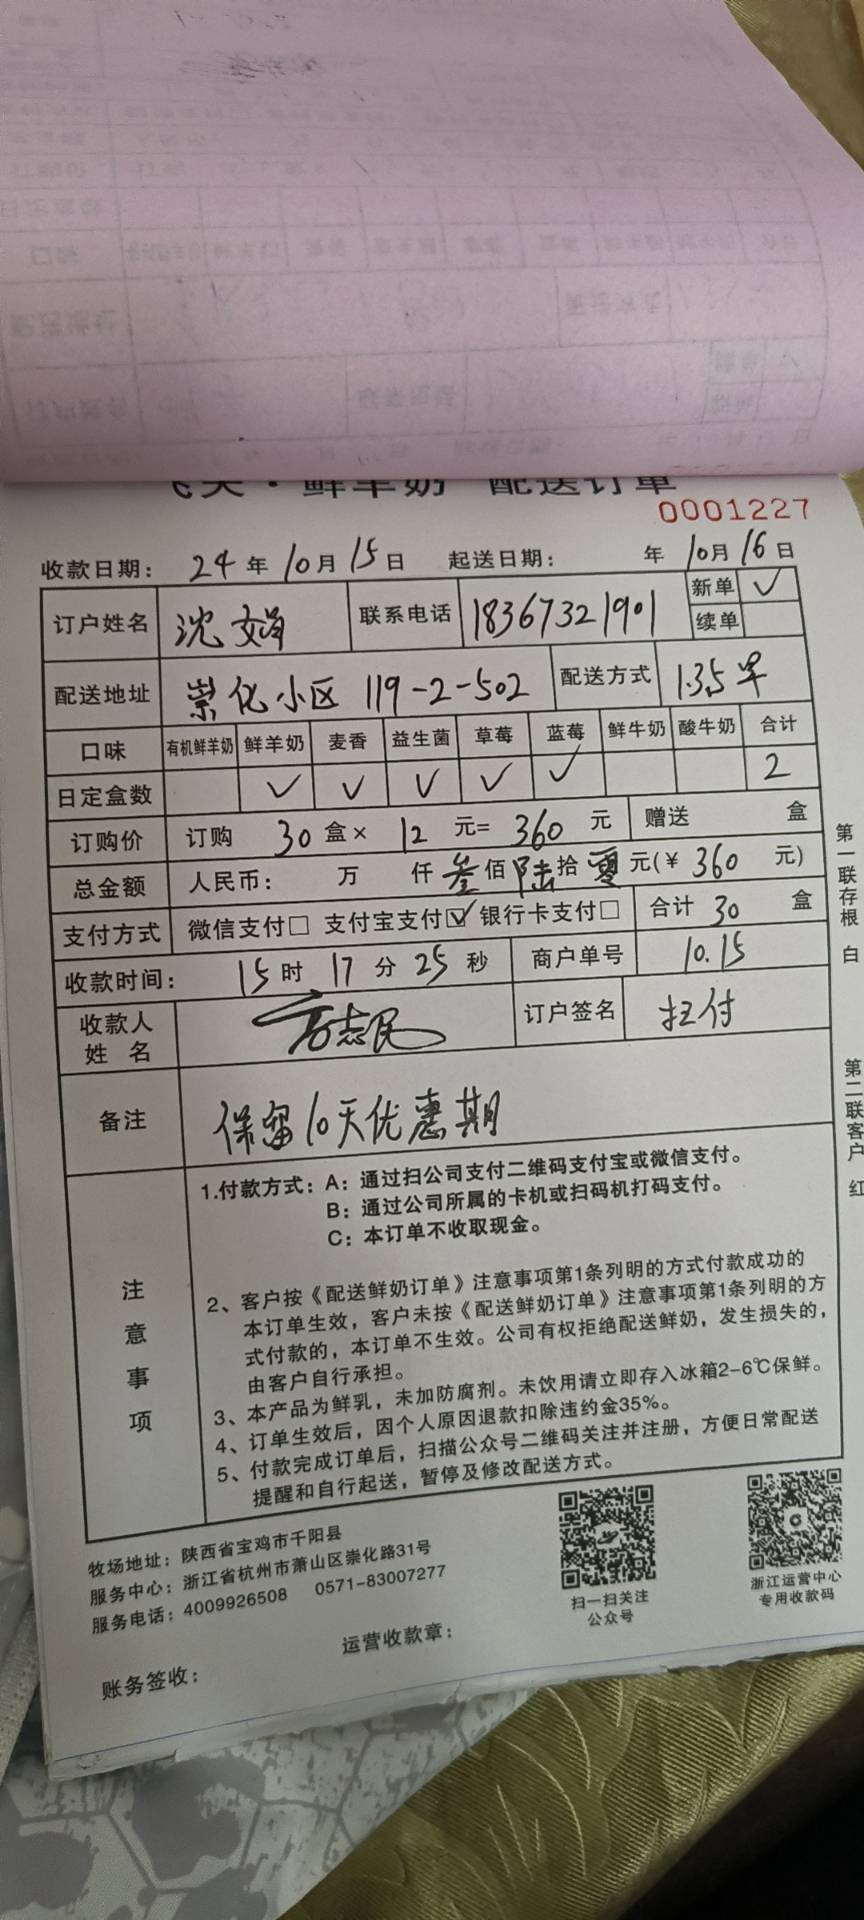 飞天·鲜羊奶 配送订单
0001227
收款日期: 24年10月15日 起送日期: 年10月16日
订户姓名 沈娟 联系电话 18367321901 新单 ✓
续单
配送地址 崇化小区 119-2-502 配送方式 1.3.5早
口味 有机鲜羊奶 鲜羊奶 麦香 益生菌 草莓 蓝莓 鲜牛奶 酸牛奶 合计
日定盒数 ✓ ✓ ✓ ✓ ✓ 2
订购价 订购 30盒× 12 元= 360 元 赠送 盒
总金额 人民币: 万 仟叁佰陆拾零元(¥ 360 元)
支付方式 微信支付□ 支付宝支付☑ 银行卡支付□ 合计 30 盒
收款时间: 15时 17分 25秒 商户单号 10.15
收款人 订户签名 扫付
姓 名 志民
备注 保留10天优惠期
注意事项
1.付款方式: A: 通过扫公司支付二维码支付宝或微信支付。
B: 通过公司所属的卡机或扫码机打码支付。
C: 本订单不收取现金。
2、客户按《配送鲜奶订单》注意事项第1条列明的方式付款成功的
本订单生效，客户未按《配送鲜奶订单》注意事项第1条列明的方
式付款的，本订单不生效。公司有权拒绝配送鲜奶，发生损失的，
由客户自行承担。
3、本产品为鲜乳，未加防腐剂。未饮用请立即存入冰箱2-6℃保鲜。
4、订单生效后，因个人原因退款扣除违约金35%。
5、付款完成订单后，扫描公众号二维码关注并注册，方便日常配送
提醒和自行起送，暂停及修改配送方式。
第一联存根 白
第二联客户 红
牧场地址: 陕西省宝鸡市千阳县
服务中心: 浙江省杭州市萧山区崇化路31号
服务电话: 4009926508 0571-83007277
扫一扫关注
公众号
浙江运营中心
专用收款码
运营收款章:
账务签收: